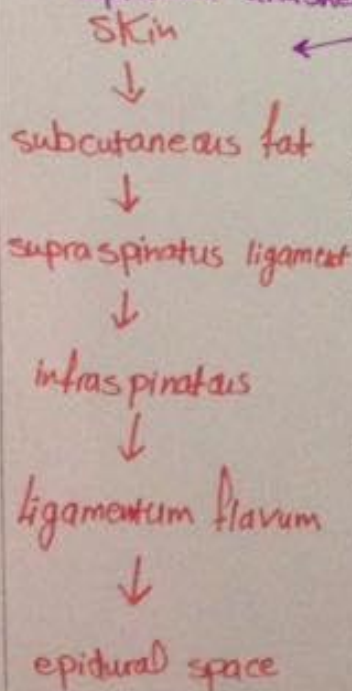 skin
↓
subcutaneous fat
↓
supraspinatus ligament
↓
infraspinatous
↓
ligamentum flavum
↓
epidural space